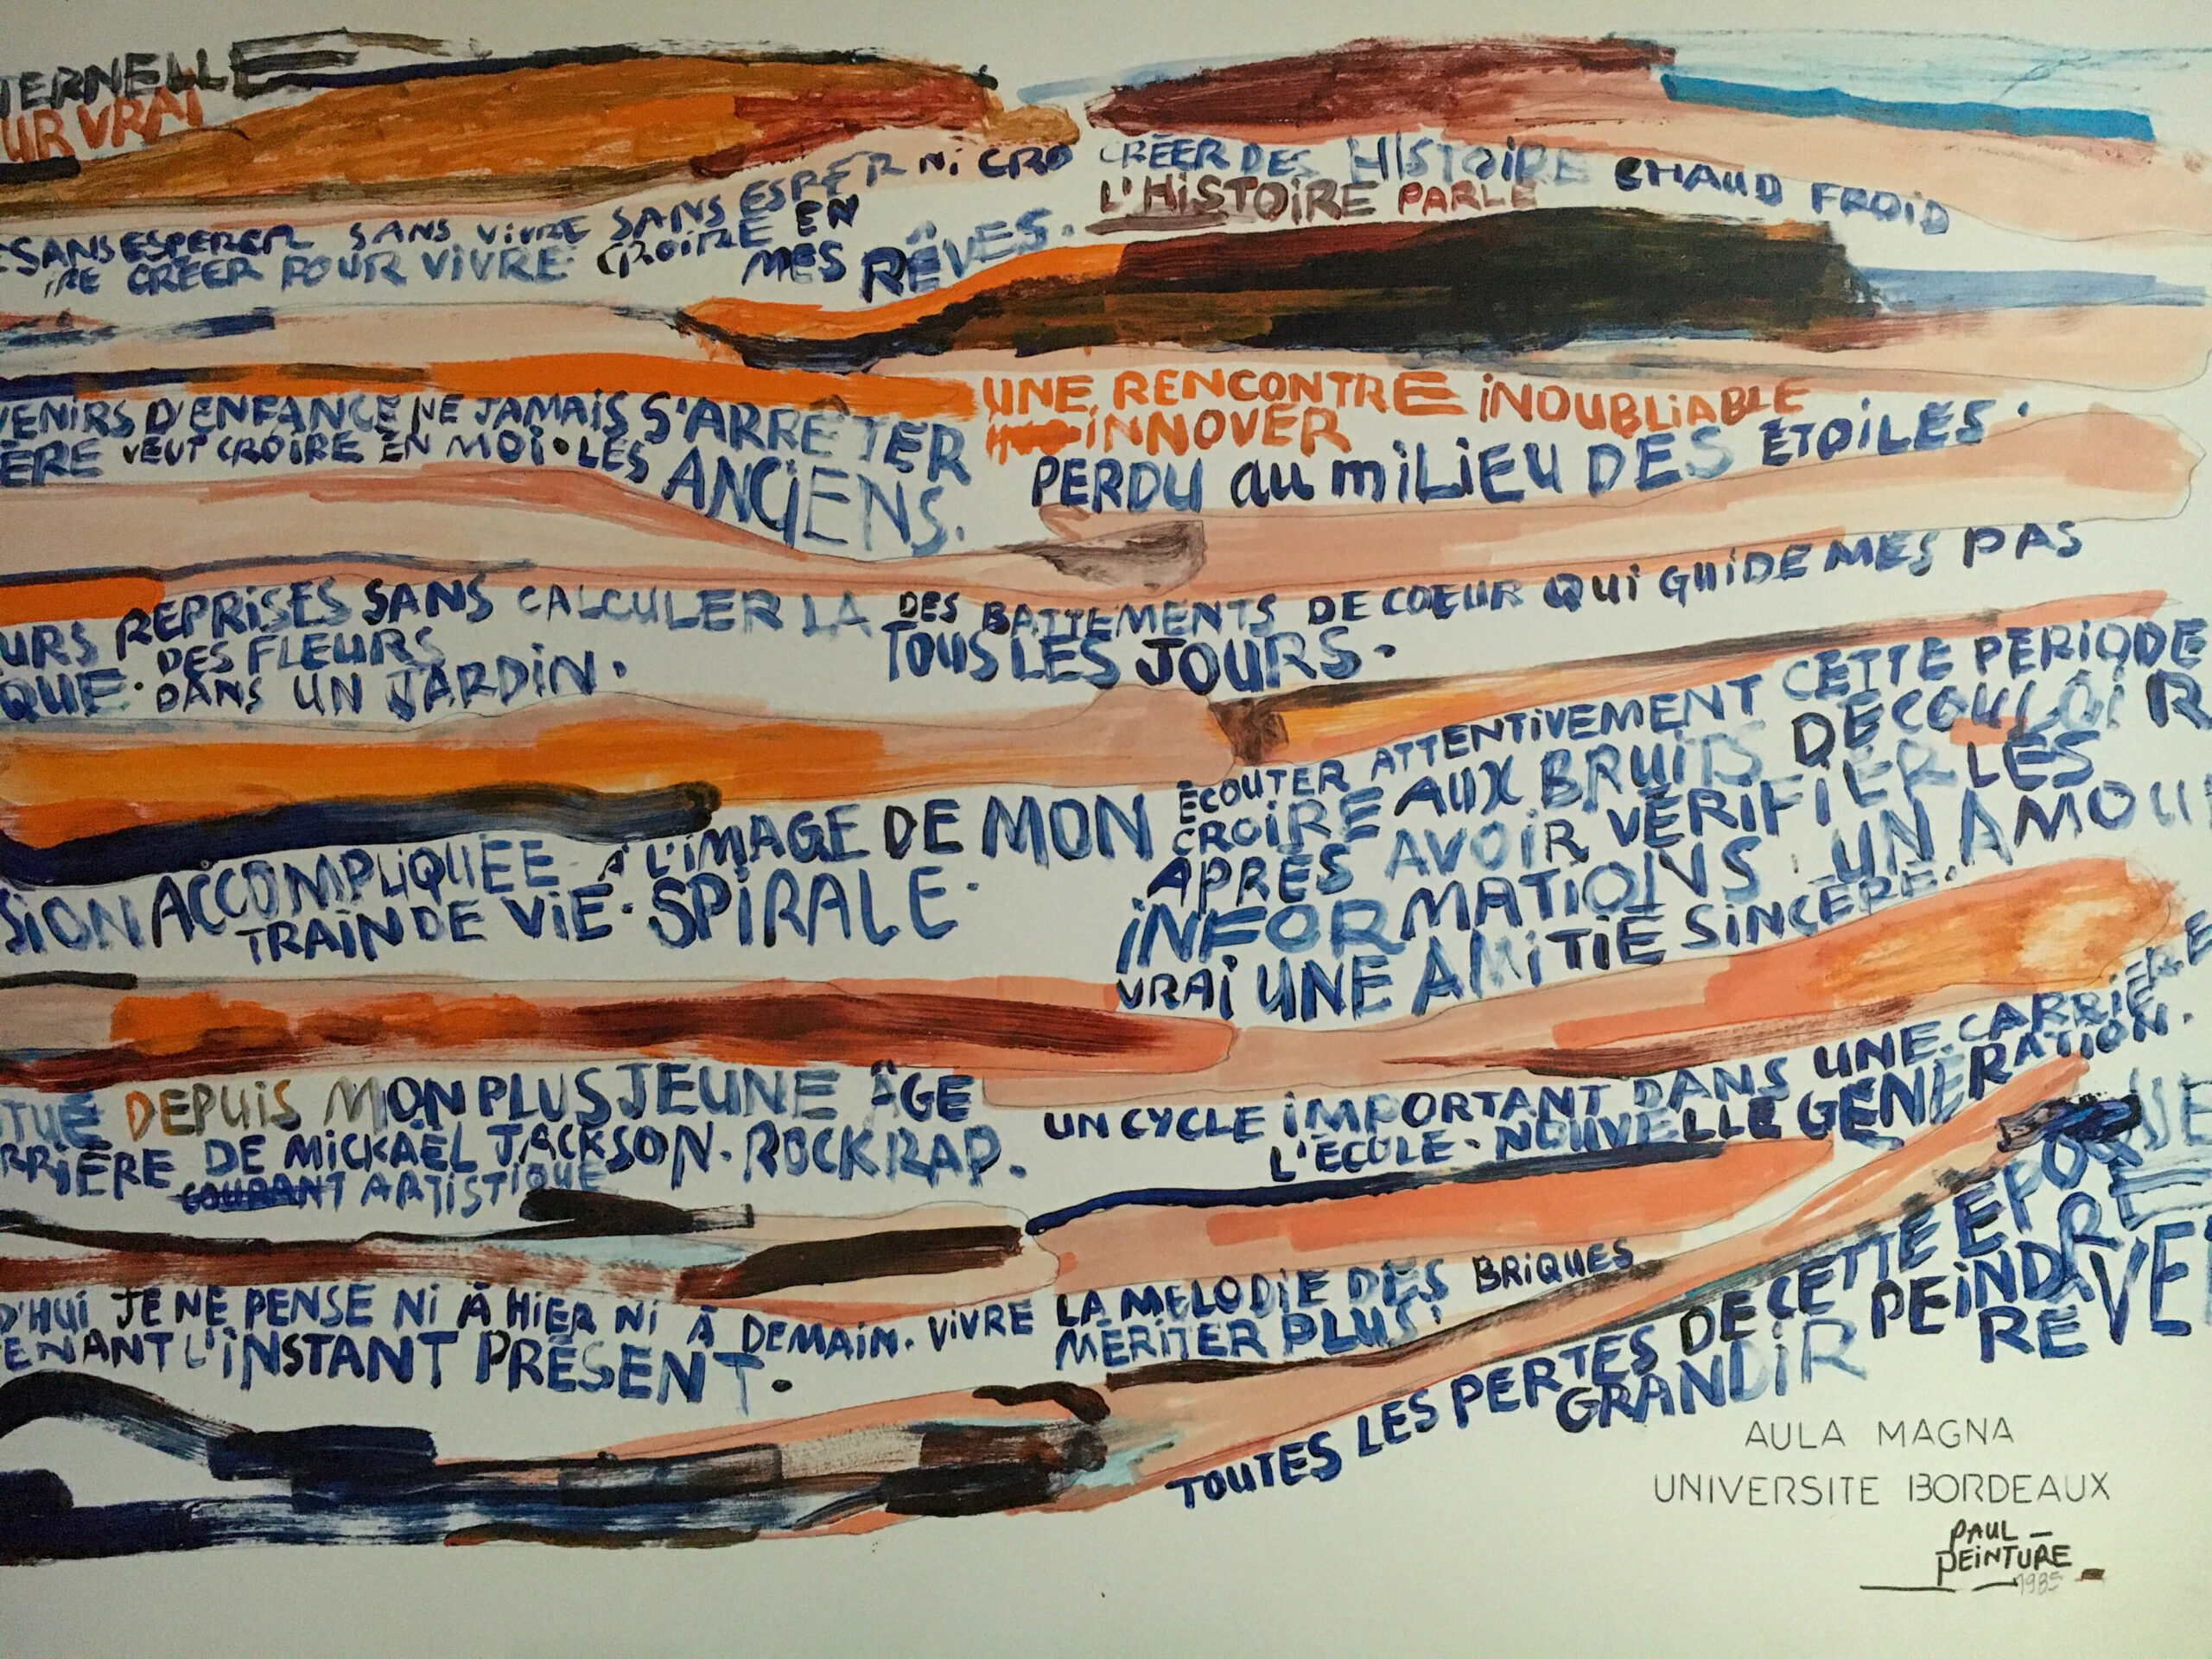 TERNELLE
UR VRAI
SANS ESPERER SANS VIVRE SANS ESPRER NI CRO
IRE CRÉER POUR VIVRE CROIRE EN
MES RÊVES.
CRÉER DES HISTOIRE CHAUD FROID
L'HISTOIRE PARLE
VENIRS D'ENFANCE NE JAMAIS S'ARRÊTER
ÈRE VEUT CROIRE EN MOI • LES
ANCIENS.
UNE RENCONTRE INOUBLIABLE
INNOVER
PERDU AU MILIEU DES ÉTOILES.
URS REPRISES SANS CALCULER LA
QUE. DES FLEURS
DANS UN JARDIN.
DES BATTEMENTS DE COEUR QUI GUIDE MES PAS
TOUS LES JOURS.
SION ACCOMPLIQUÉE À L'IMAGE DE MON
TRAIN DE VIE. SPIRALE.
ÉCOUTER ATTENTIVEMENT CETTE PÉRIODE
CROIRE AUX BRUITS DE COULOIR
APRÈS AVOIR VÉRIFIER LES
INFORMATIONS. UN AMOU
VRAI UNE AMITIÉ SINCÈRE.
TUÉ DEPUIS MON PLUS JEUNE ÂGE
RRIÈRE DE MICKAËL JACKSON. ROCK RAP.
COURANT ARTISTIQUE
UN CYCLE IMPORTANT DANS UNE CARRIÈRE
L'ÉCOLE. NOUVELLE GÉNÉRATION.
D'HUI JE NE PENSE NI À HIER NI À DEMAIN. VIVRE
ENANT L'INSTANT PRÉSENT.
LA MELODIE DES BRIQUES
MÉRITER PLUS
TOUTES LES PERTES DE CETTE EPOQUE
GRANDIR PEINDRE
RÊVE
AULA MAGNA
UNIVERSITE BORDEAUX
PAUL –
PEINTURE
1985